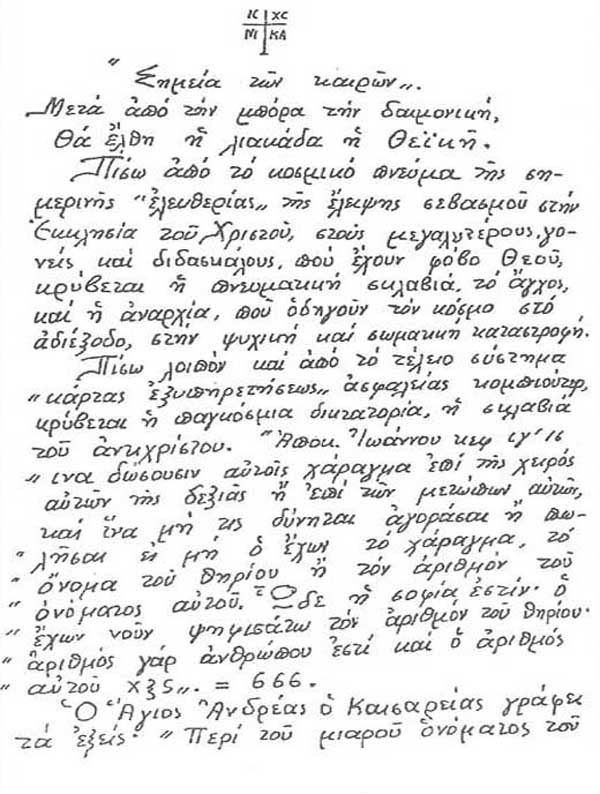 IC XC
NI KA
" Σημεία τῶν καιρῶν „.
Μετά ἀπό τήν μπόρα τήν δαιμονική,
Θά ἔλθη ἡ λιακάδα ἡ Θεϊκή.
Πίσω ἀπό τό κοσμικό πνεῦμα τῆς ση-
μερινῆς "ἐλευθερίας„ τῆς ἔλειψης σεβασμοῦ στήν
Ἐκκλησία τοῦ Χριστοῦ, στούς μεγαλυτέρους, γο-
νεῖς καί διδασκάλους, πού ἔχουν φόβο Θεοῦ,
κρύβεται ἡ πνευματική σκλαβιά, τό ἄγχος,
καί ἡ ἀναρχία, πού ὁδηγοῦν τόν κόσμο στό
ἀδιέξοδο, στήν ψυχική καί σωματική καταστροφή.
Πίσω λοιπόν καί ἀπό τό τέλειο σύστημα
"κάρτας ἐξυπηρετήσεως„ ἀσφαλείας κομπιοῦτερ,
κρύβεται ἡ παγκόσμια δικτατορία, ἡ σκλαβιά
τοῦ ἀντιχρίστου. "Ἀποκ. Ἰωάννου κεφ ιγ' 16
" ινα δώσουσιν αὐτοῖς χάραγμα ἐπί τῆς χειρός
αὐτῶν τῆς δεξιᾶς ἤ ἐπί τῶν μετώπων αὐτῶν,
καί ἵνα μή τις δύνηται ἀγοράσαι ἤ πω-
" λῆσαι εἰ μή ὁ ἔχων τό χάραγμα, τό
" ὄνομα τοῦ θηρίου ἤ τόν ἀριθμόν τοῦ
" ὀνόματος αὐτοῦ. Ὧδε ἡ σοφία ἐστίν· ὁ
" ἔχων νοῦν ψηφισάτω τόν ἀριθμόν τοῦ θηρίου·
" ἀριθμός γάρ ἀνθρώπου ἐστί καί ὁ ἀριθμός
" αὐτοῦ χξς„. = 666.
Ὁ Ἅγιος Ἀνδρέας ὁ Καισαρείας γράφει
τά ἑξεῖς· "Περί τοῦ μιαροῦ ὀνόματος τοῦ